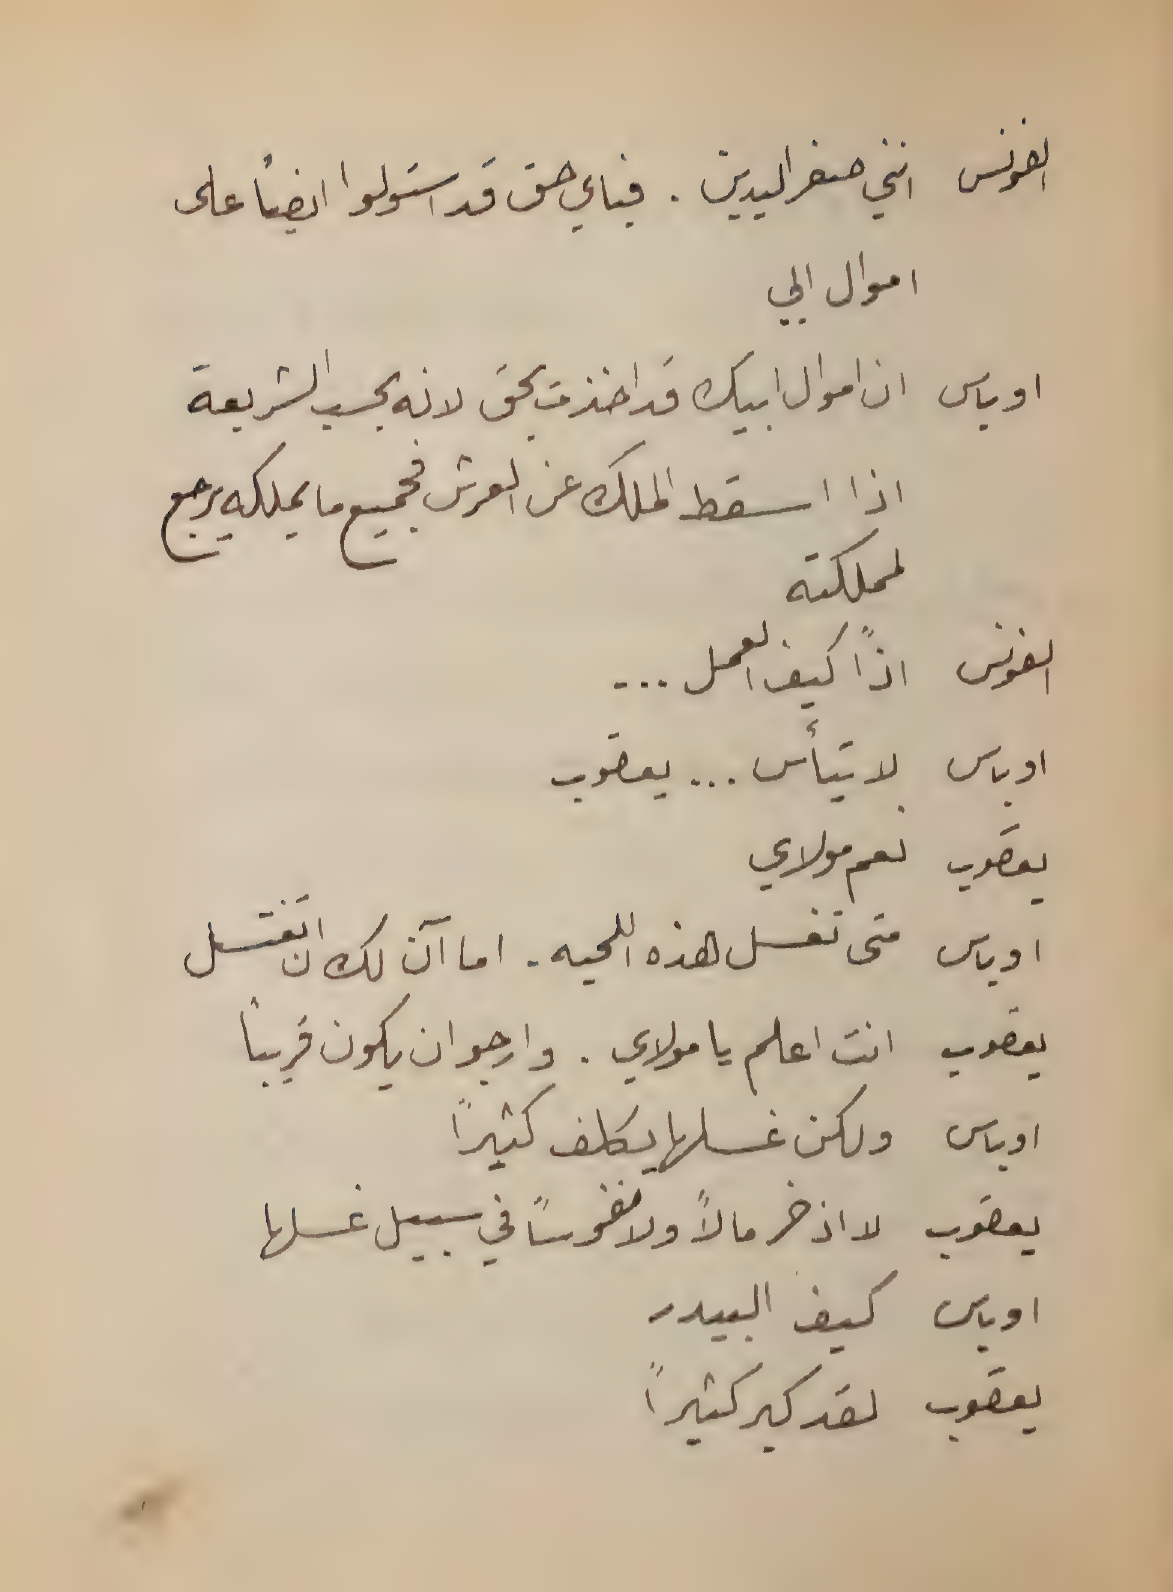 الفونس انني صفر اليدين . فباي حق قد استولوا ايضاً على
اموال ابي
اوباس ان اموال ابيك قد اخذت بحق لانه بحسب الشريعة
اذا اسقط الملك عن العرش فجميع ما يملكه يرجع
لمملكته
الفونس اذاً كيف العمل ...
اوباس لا تيأس ... يعقوب
يعقوب نعم مولاي
اوباس متى تغسل هذه اللحيه . اما آن لك ان تغتسل
يعقوب انت اعلم يا مولاي . وارجو ان يكون قريباً
اوباس ولكن غسلها يكلف كثيراً
يعقوب لا اذخر مالاً ولا نفوساً في سبيل غسلها
اوباس كيف البيدر
يعقوب لقد كبر كثيراً